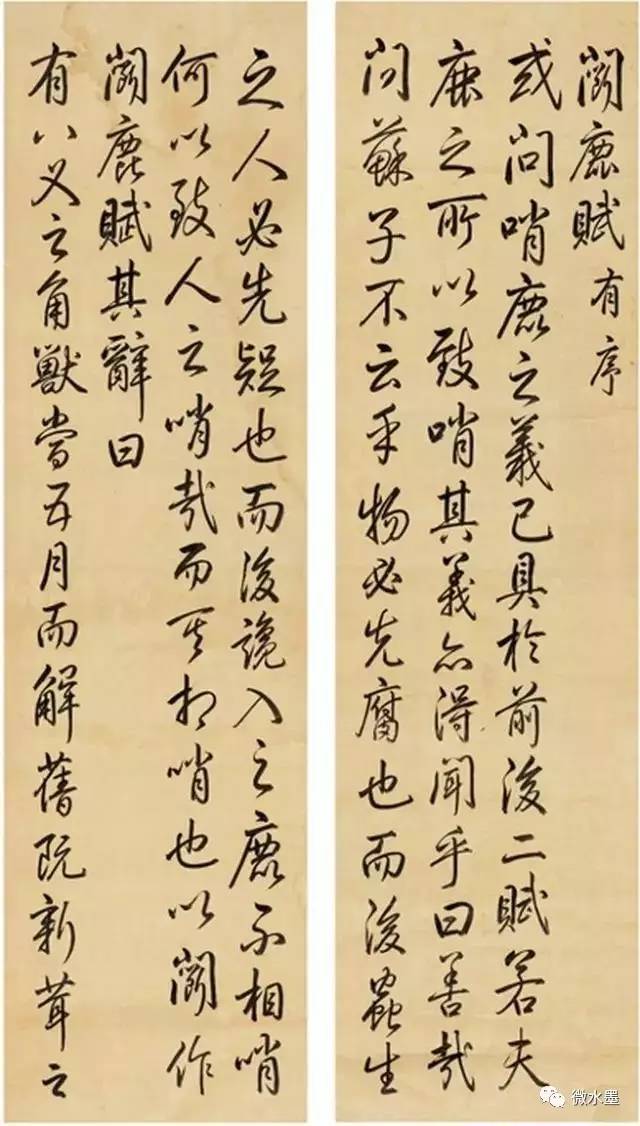 闘鹿賦有序
或問哨鹿之義已具於前後二賦若夫
鹿之所以致哨其義亦得聞乎曰善哉
問蘇子不云乎物必先腐也而後蟲生
之人必先疑也而後讒入之鹿不相哨
何以致人之哨哉而其相哨也以闘作
闘鹿賦其辭曰
有八叉之角獸當五月而解舊既新茸之
微水墨